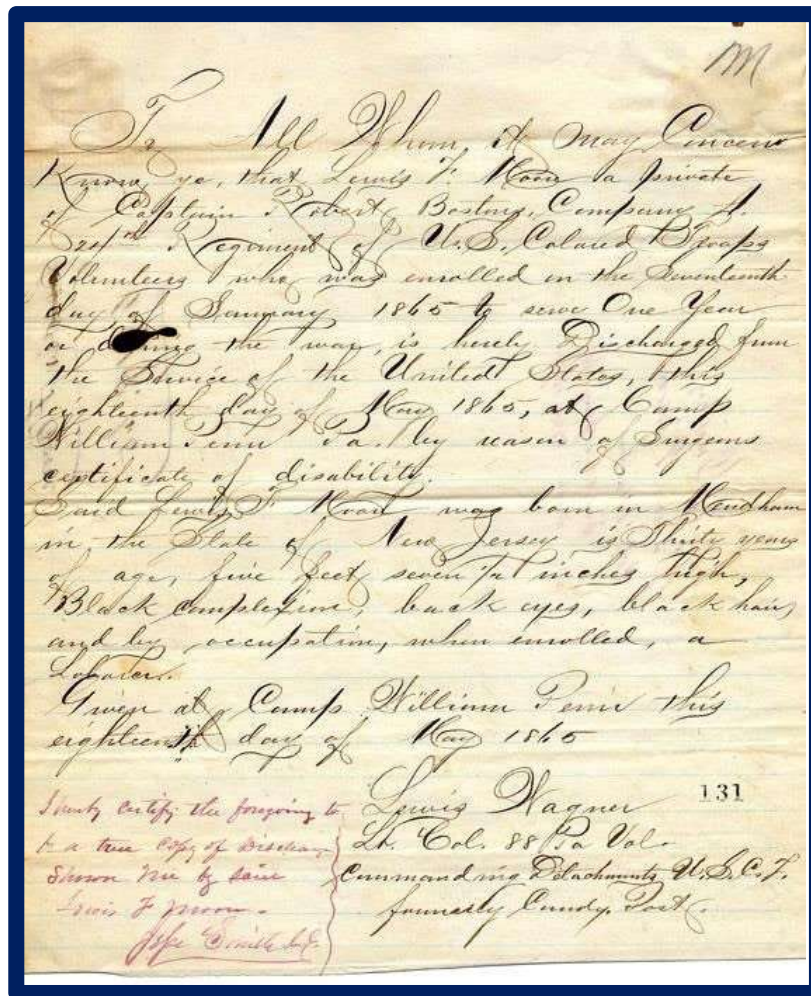 M
To All Whom it may Concern
Know ye, that Lewis F. Moore a private
of Captain Robert Bostons, Company A.
24th Regiment of U.S. Colored Troops
Volunteers who was enrolled on the Seventeenth
day of January 1865 to serve One Year
or during the war, is hereby Discharged from
the Service of the United States, this
eighteenth day of May 1865, at Camp
William Penn Pa. by reason of Surgeons
certificate of disability.
Said Lewis F. Moore was born in Mendham
in the State of New Jersey is Thirty years
of age, five feet seven inches high,
Black complexion, back eyes, black hair,
and by occupation, when enrolled, a
Laborer.
Given at Camp William Penn this
eighteenth day of May 1865
Lewis Wagner
131
Lt. Col. 88 Pa Vol.
Commanding Detachments U.S.C.T.
formerly Comdg. Post.
I hereby certify the foregoing to
be a true copy of Discharge
Shown me by said